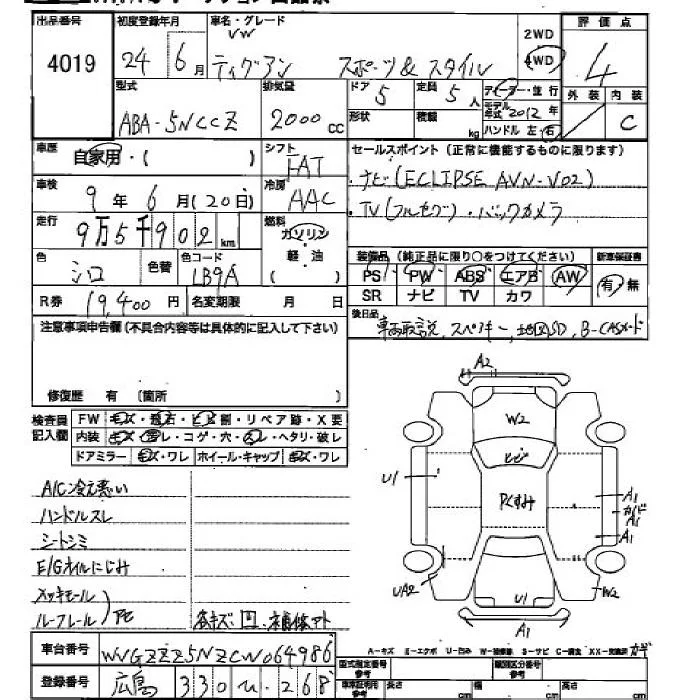 出品番号 初度登録年月 車名・グレード 評価点
4019 24年 6月 VW ティグアン スポーツ&スタイル 2WD 4WD 4
型式 排気量 ドア 定員 ディーラー・並行 外装 内装
ABA-5NCCZ 2000cc 5 5人 モデル年式 2012年 C
形状 積載 kg ハンドル 左・右
車歴 自家用・( ) シフト FAT セールスポイント(正常に機能するものに限ります)
車検 9年6月(20日) 冷房 AAC ・ナビ(ECLIPSE AVN-V02)
走行 9万5千902km 燃料 ガソリン ・TV(フルセグ)・バックカメラ
軽・油
( )
色 シロ 色替 色コード LB9A 装備品(純正品に限り○をつけてください) 新車保証書
PS PW ABS エアB AW 有・無
R券 19,400円 名変期限 月 日 SR ナビ TV カワ
注意事項申告欄(不具合内容等は具体的に記入して下さい) 後日品
車両取説、スペアキー、地図SD、B-CASカード
修復歴 有 (箇所 )
検査員記入欄 FW キズ・飛石・ヒビ割・リペア跡・X要
内装 キズ・ヨゴレ・コゲ・穴・スレ・ヘタリ・破レ
ドアミラー キズ・ワレ ホイール・キャップ キズ・ワレ
A2
W2
ヒビ
U1 Pくすみ A1
A1
A1
UA2 U1 W2
A1
A/C冷え悪い
ハンドルスレ
シートシミ
E/Gオイルにじみ
メッキモール
ルーフレール
各キズ 凹・補修アト
車台番号 WVGZZZ5NZCW064986
A-キズ E-エクボ U-凹み W-補修跡 S-サビ C-腐食 XX-交換済
登録番号 広島 330 ひ 268
型式指定番号 参考 類別区分番号 参考
長さ cm 幅 cm 高さ cm